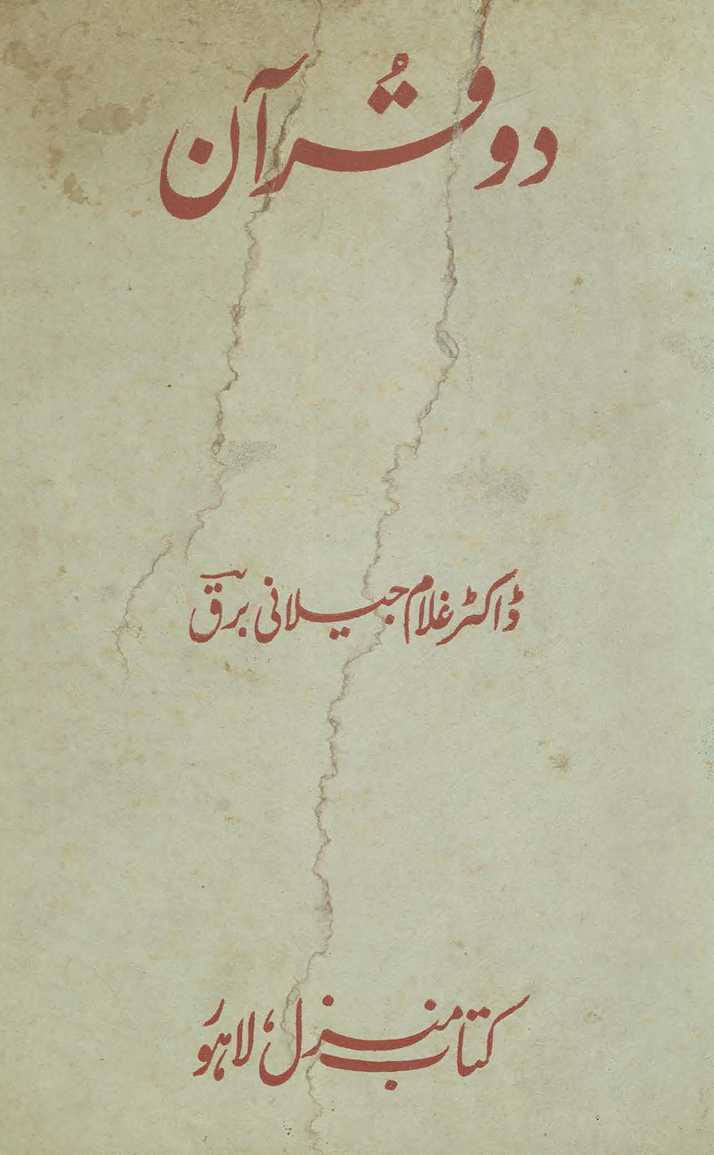 دو قُرآن
ڈاکٹر غلام جیلانی برق
کتاب منزل، لاہور